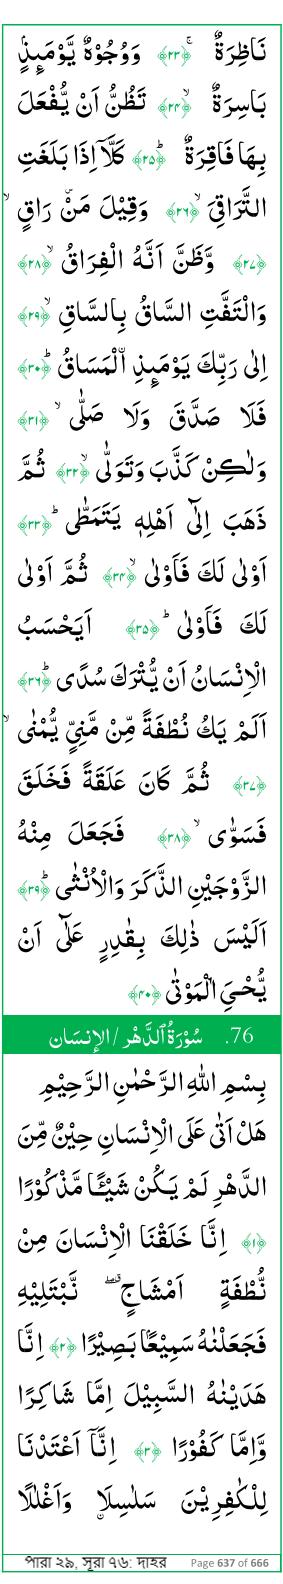 نَاظِرَةٌ ۚ ﴿۲۳﴾ وَوُجُوْهٌ يَّوْمَىِٕذٍۭ
بَاسِرَةٌ ۙ ﴿۲۴﴾ تَظُنُّ اَنْ يُّفْعَلَ
بِهَا فَاقِرَةٌ ؕ ﴿۲۵﴾ كَلَّاۤ اِذَا بَلَغَتِ
التَّرَاقِىَ ۙ ﴿۲۶﴾ وَقِيْلَ مَنْ ٚ رَاقٍ ۙ
﴿۲۷﴾ وَّظَنَّ اَنَّهُ الْفِرَاقُ ۙ ﴿۲۸﴾
وَالْتَفَّتِ السَّاقُ بِالسَّاقِ ۙ ﴿۲۹﴾
اِلٰى رَبِّكَ يَوْمَىِٕذِ اۨلْمَسَاقُ ؕ ﴿۳۰﴾
فَلَا صَدَّقَ وَلَا صَلّٰى ۙ ﴿۳۱﴾
وَلٰكِنْ كَذَّبَ وَتَوَلّٰى ۙ ﴿۳۲﴾ ثُمَّ
ذَهَبَ اِلٰٓى اَهْلِهٖ يَتَمَطّٰى ؕ ﴿۳۳﴾
اَوْلٰى لَكَ فَاَوْلٰى ۙ ﴿۳۴﴾ ثُمَّ اَوْلٰى
لَكَ فَاَوْلٰى ؕ ﴿۳۵﴾ اَيَحْسَبُ
الْاِنْسَانُ اَنْ يُّتْرَكَ سُدًى ؕ ﴿۳۶﴾
اَلَمْ يَكُ نُطْفَةً مِّنْ مَّنِىٍّ يُّمْنٰى ۙ
﴿۳۷﴾ ثُمَّ كَانَ عَلَقَةً فَخَلَقَ
فَسَوّٰى ۙ ﴿۳۸﴾ فَجَعَلَ مِنْهُ
الزَّوْجَيْنِ الذَّكَرَ وَالْاُنْثٰى ؕ ﴿۳۹﴾
اَلَيْسَ ذٰلِكَ بِقٰدِرٍ عَلٰٓى اَنْ
يُّحْیِۦَ الْمَوْتٰى ﴿۴۰﴾
76. سُوْرَةُ الدَّهْر / الإنسَان
بِسْمِ اللهِ الرَّحْمٰنِ الرَّحِيْمِ
هَلْ اَتٰى عَلَى الْاِنْسَانِ حِيْنٌ مِّنَ
الدَّهْرِ لَمْ يَكُنْ شَيْـًٔا مَّذْكُوْرًا
﴿۱﴾ اِنَّا خَلَقْنَا الْاِنْسَانَ مِنْ
نُّطْفَةٍ اَمْشَاجٍ ۖ ق نَّبْتَلِيْهِ
فَجَعَلْنٰهُ سَمِيْعًۢا بَصِيْرًا ﴿۲﴾ اِنَّا
هَدَيْنٰهُ السَّبِيْلَ اِمَّا شَاكِرًا
وَّاِمَّا كَفُوْرًا ﴿۳﴾ اِنَّاۤ اَعْتَدْنَا
لِلْكٰفِرِيْنَ سَلٰسِلَا۟ وَاَغْلٰلًا
পারা ২৯, সূরা ৭৬: দাহর Page 637 of 666